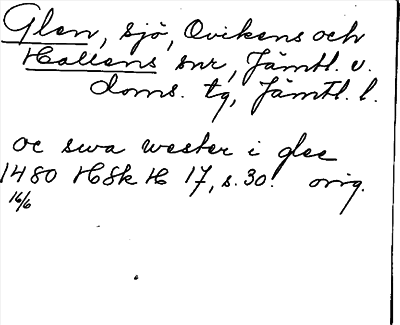 Glen, sjö, Ovikens och
Hallens snr, Jämtl. v.
doms. tg, Jämtl. l.
oc swa wester i glee
1480 HSk H 17, s. 30. orig.
16/6